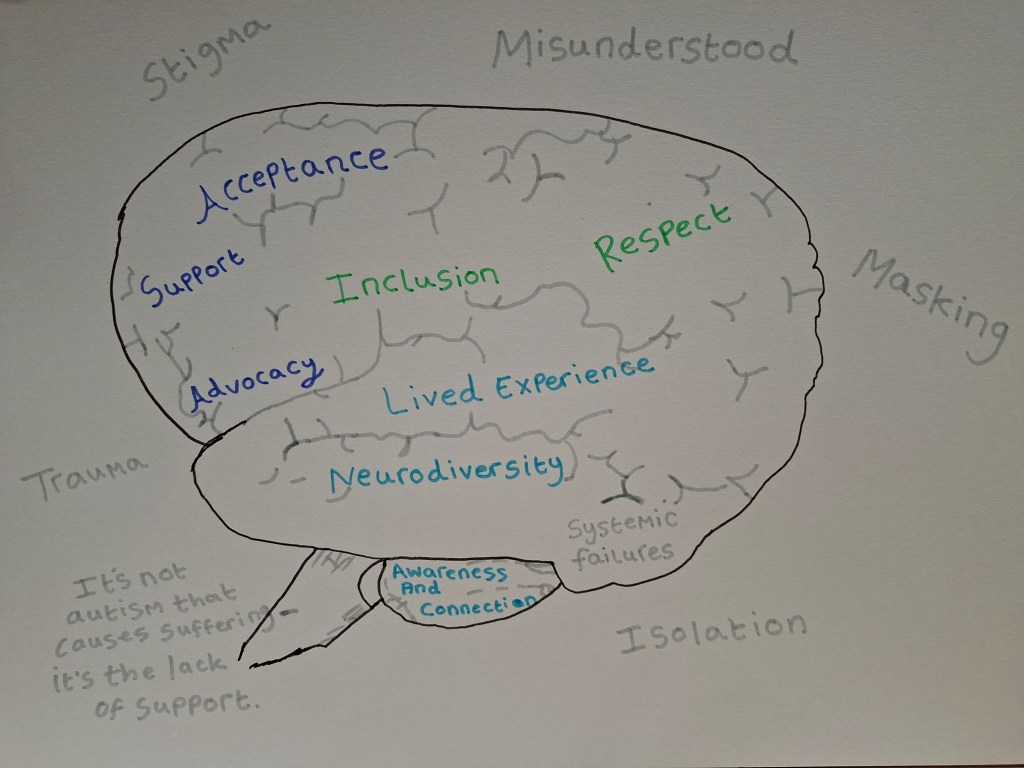 Stigma
Misunderstood
Acceptance
Respect
Support
Inclusion
Masking
Advocacy
Lived Experience
Trauma
Neurodiversity
Systemic
failures
Awareness
And
Connection
It's not
autism that
causes suffering -
it's the lack
of support.
Isolation